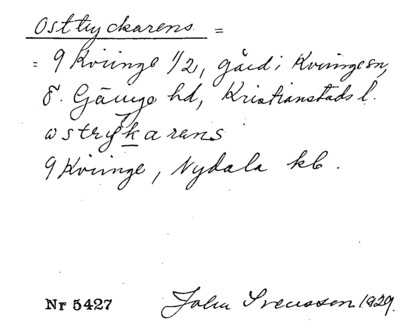 Osttryckarens =
= 9 Kviinge 1/2, gård i Kviinge sn,
Ö. Göinge hd, Kristianstads l.
ωstrykarens
9 Kviinge, Nydala kb.
Nr 5427 John Svensson 1929.